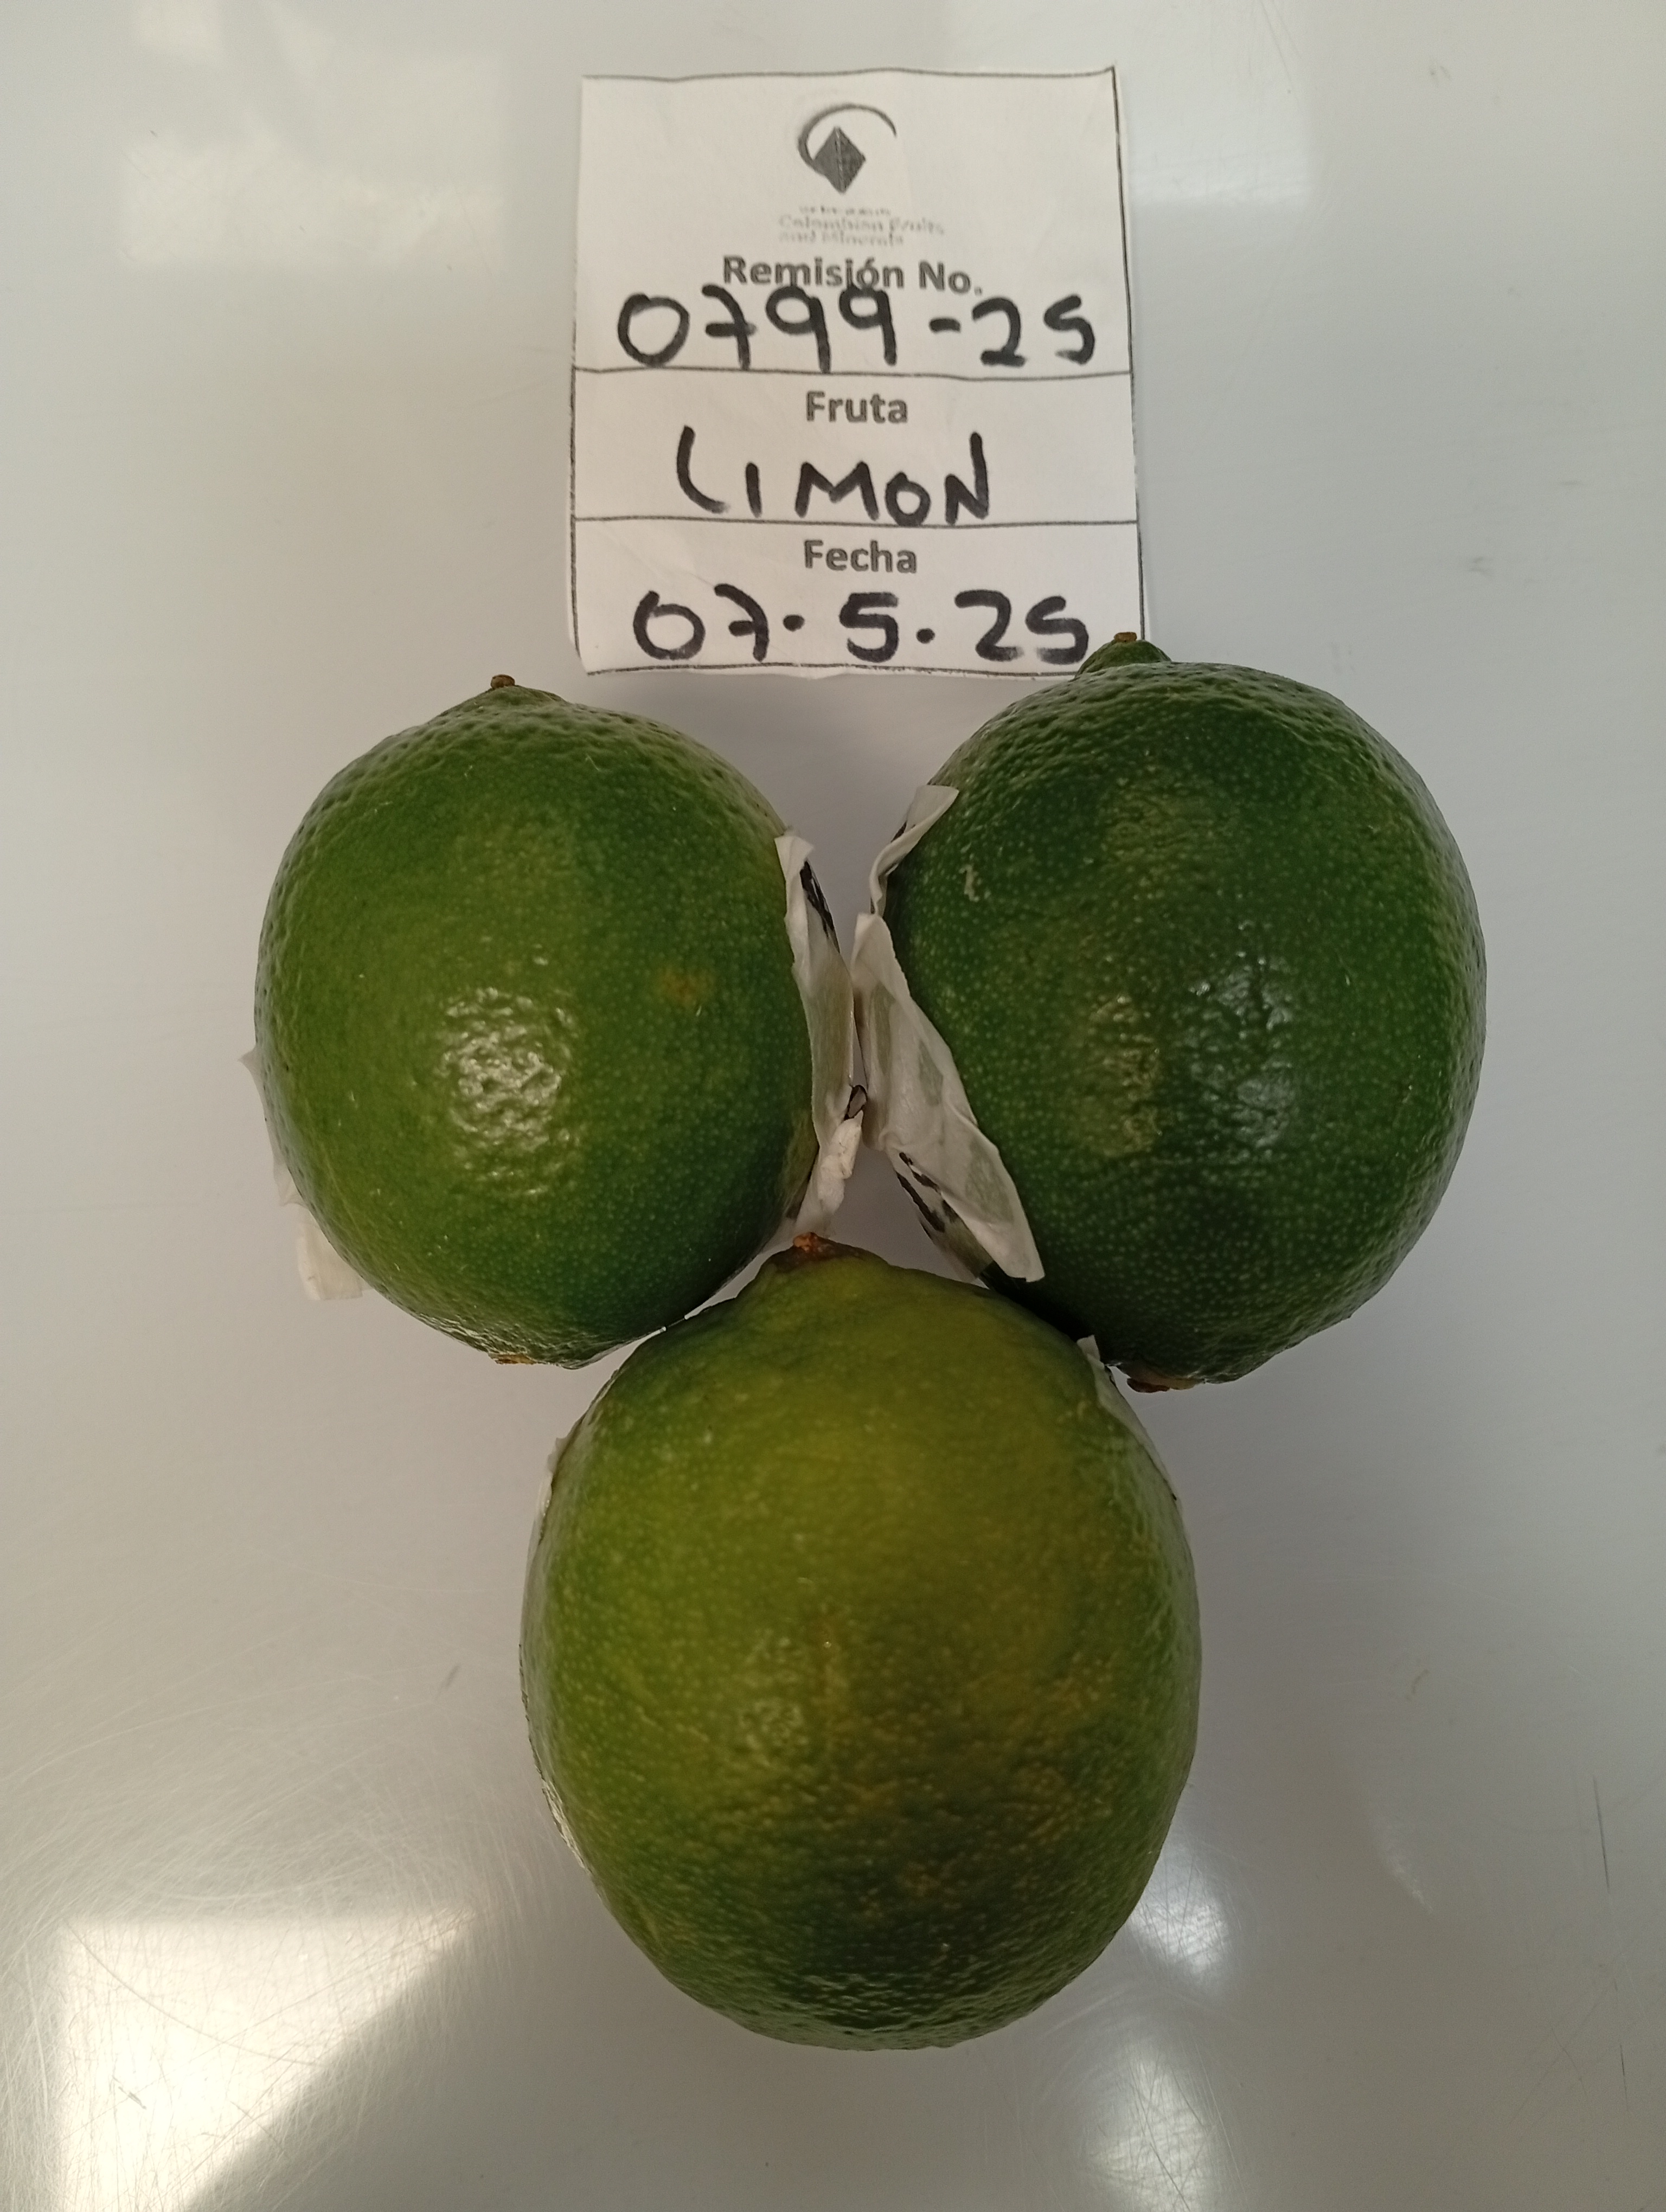 Colombian Fruits
and Minerals
Remisión No.
0799-25
Fruta
LIMON
Fecha
07.5.25